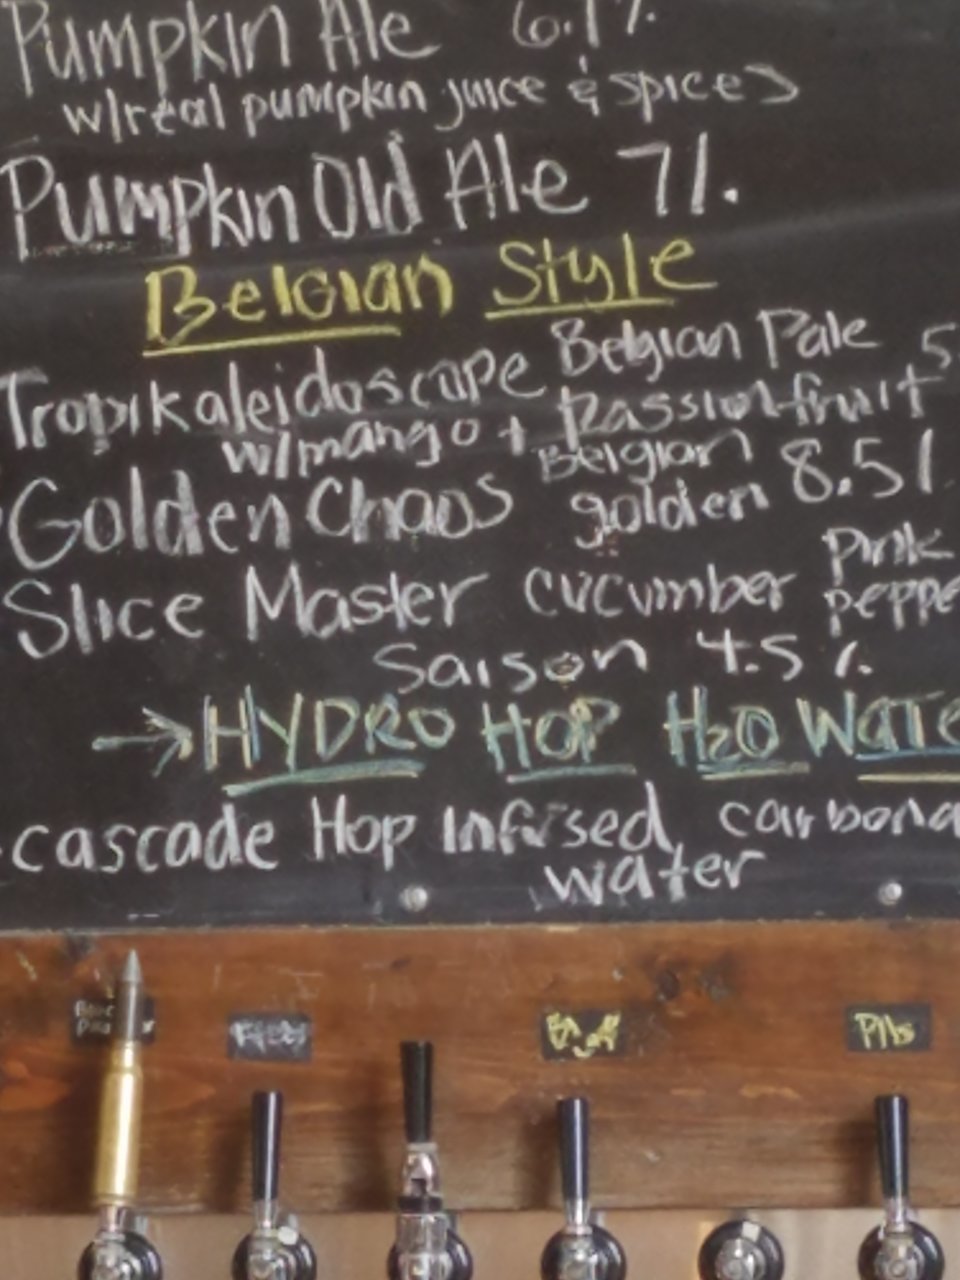 Pumpkin Ale 6.1%
w/real pumpkin juice & spices
Pumpkin Old Ale 7%
Belgian Style
Tropikaleidoscope Belgian Pale 5.
w/mango + passionfruit
Golden Chaos Belgian golden 8.5%
Slice Master cucumber pink peppe
Saison 4.5%
→HYDRO HOP H2O WATE
cascade Hop Infused, carbona
water
Pils